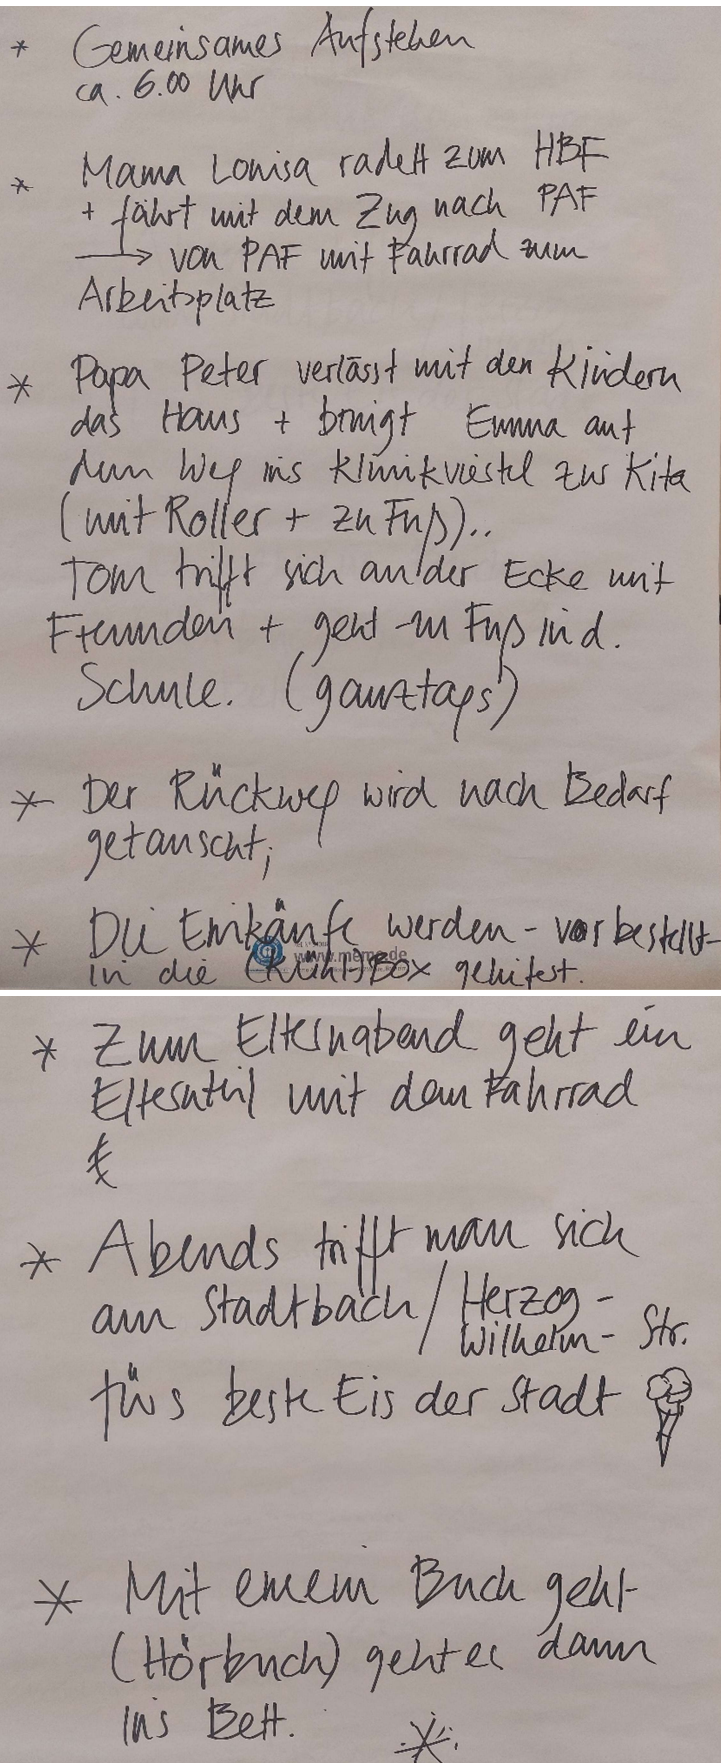 * Gemeinsames Aufstehen
ca. 6.00 Uhr
* Mama Louisa radelt zum HBF
+ fährt mit dem Zug nach PAF
→ von PAF mit Fahrrad zum
Arbeitsplatz
* Papa Peter verlässt mit den Kindern
das Haus + bringt Emma auf
dem Weg ins Klinikviertel zur Kita
(mit Roller + zu Fuß)..
Tom trifft sich an der Ecke mit
Freunden + geht zu Fuß in d.
Schule. (ganztags)
* Der Rückweg wird nach Bedarf
getauscht;
* Die Einkäufe werden - vorbestellt -
in die (Kühl)BOX geliefert.
www.meme.de
* Zum Elternabend geht ein
Elternteil mit dem Fahrrad
* Abends trifft man sich
am Stadtbach / Herzog-
Wilhelm- Str.
fürs beste Eis der Stadt
* Mit einem Buch geht
(Hörbuch) geht es dann
ins Bett.